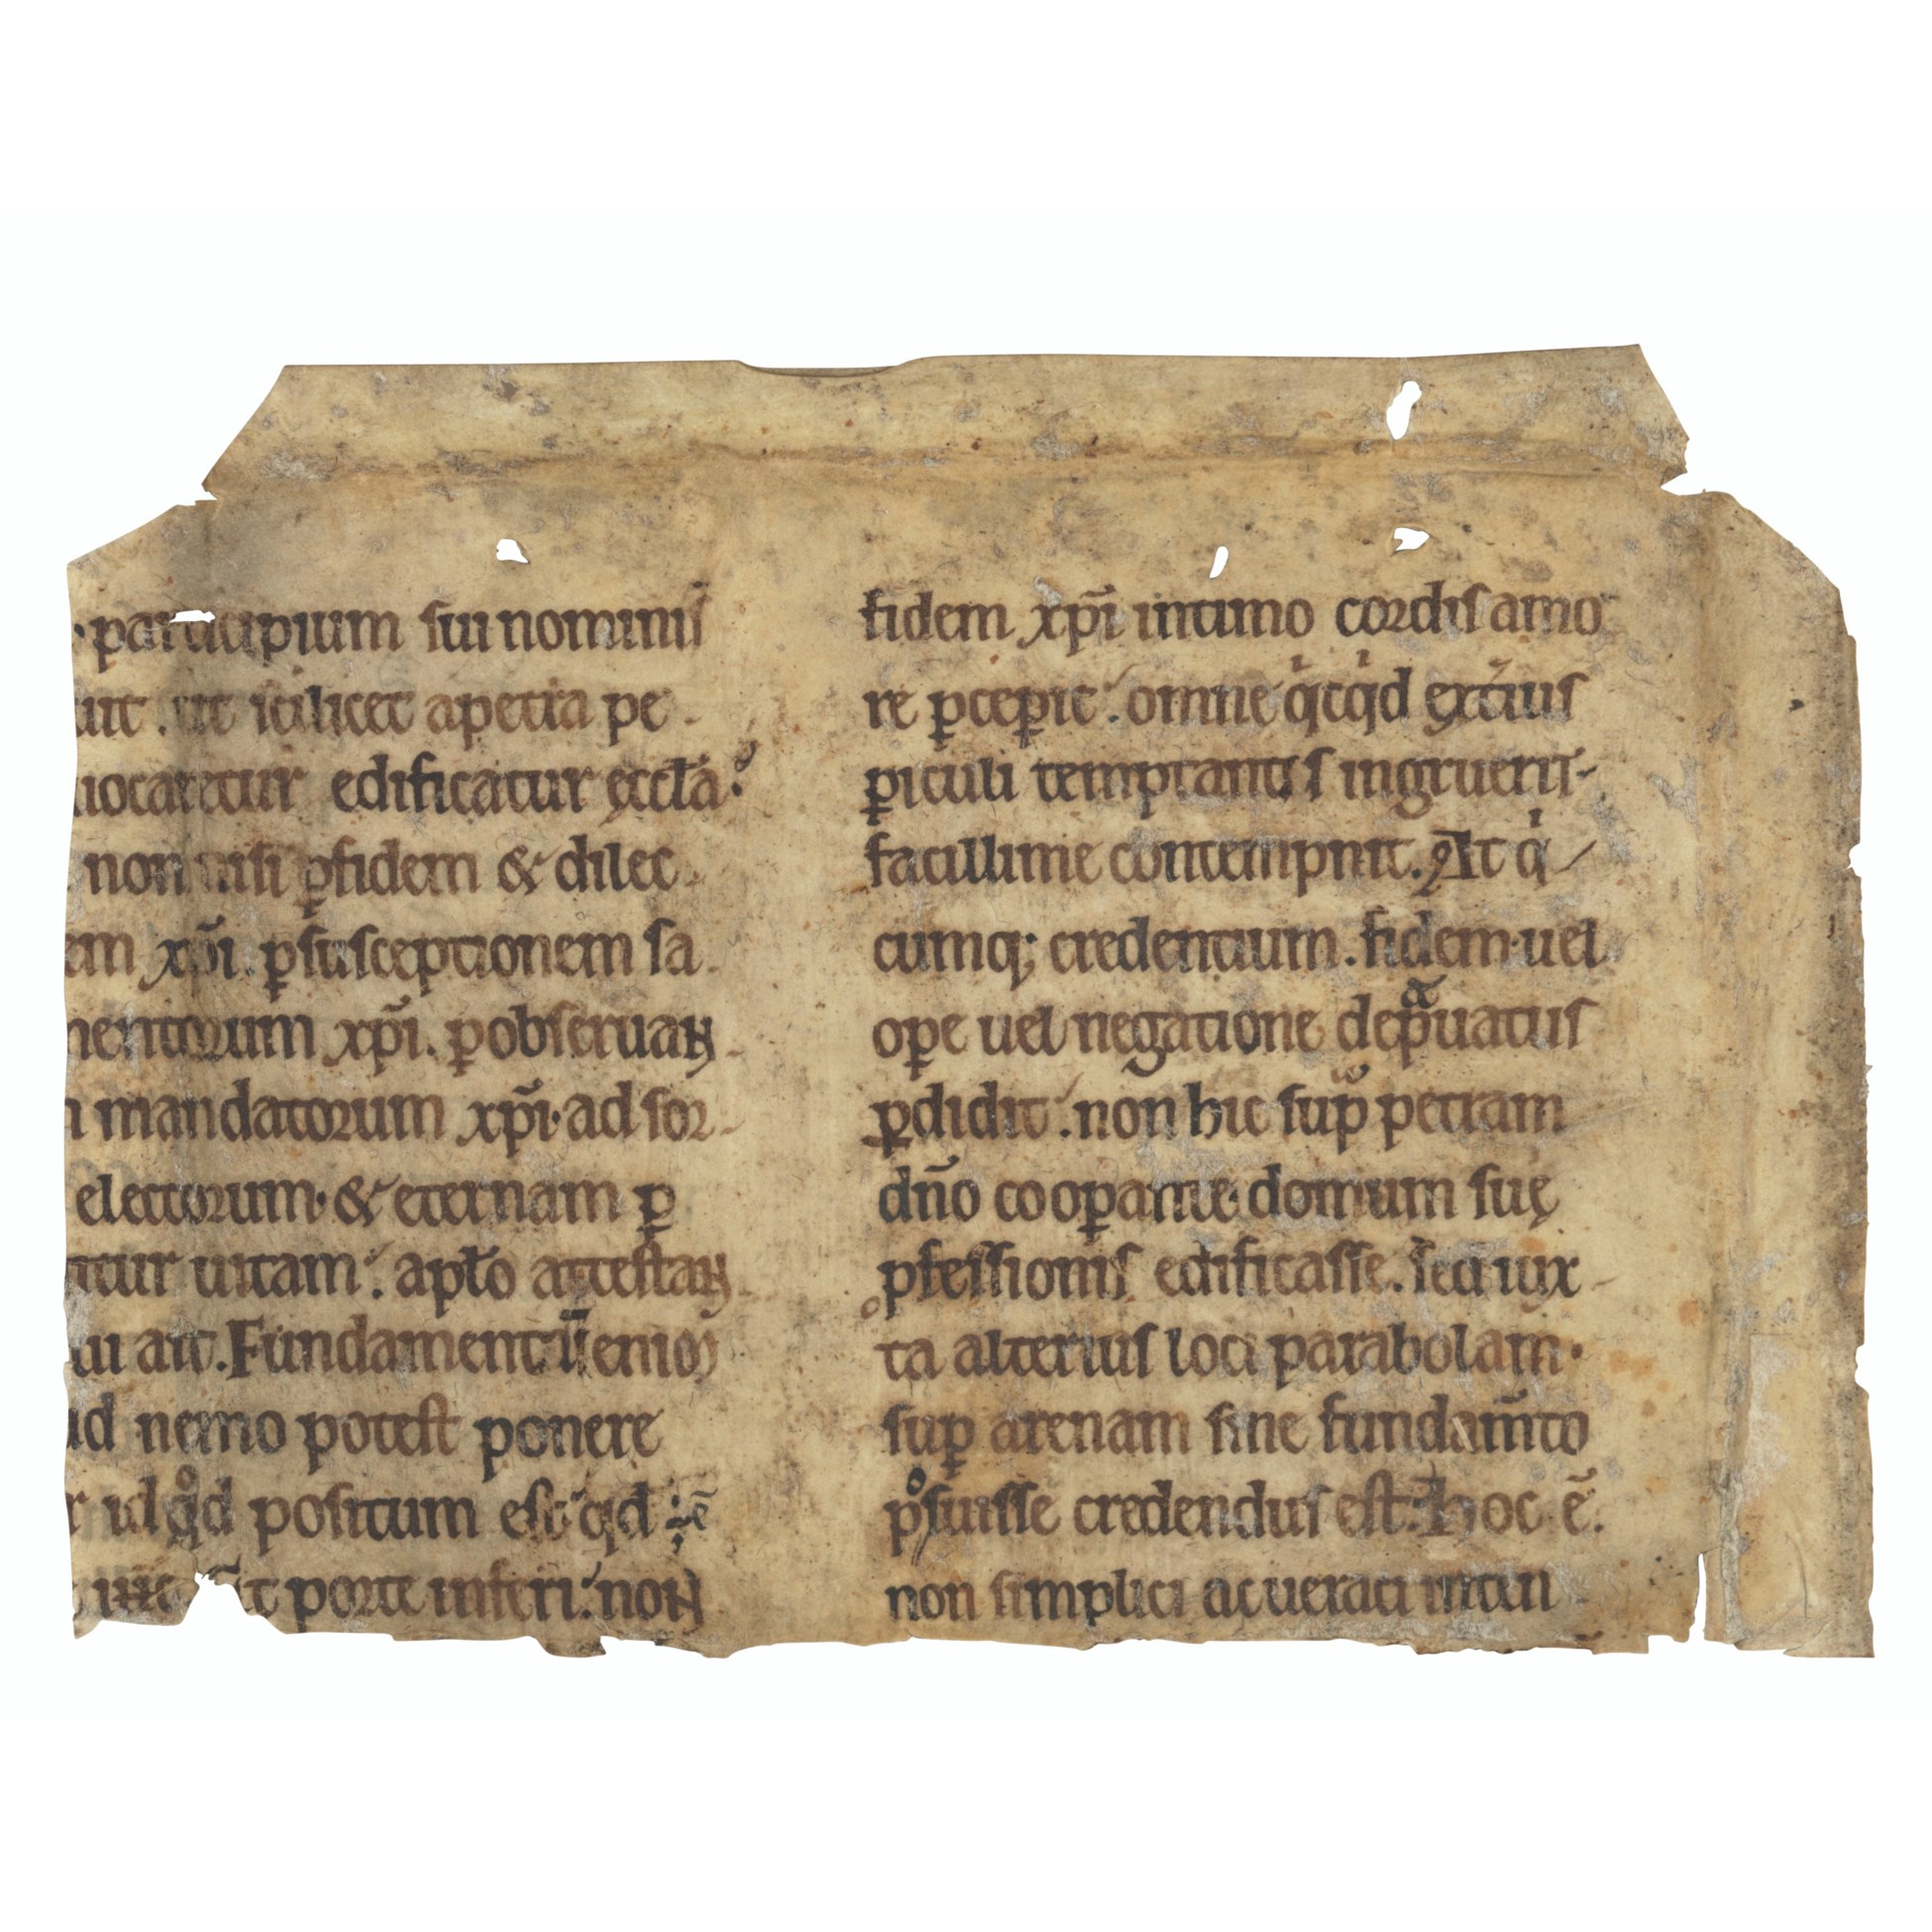 participium sui nominis
uit. ut scilicet a petra pe-
uocaretur edificatur ęccła.
non nisi ꝑ fidem & dilec-
em xp̄i. ꝑ susceptionem sa-
mentorum xp̄i. ꝑ obseruan-
mandatorum xp̄i. ad sor-
electorum. & eternam ꝑ
itur uitam. apło attestan-
ui ait. Fundamentū enim
ud nemo potest ponere
r id qͦd positum est qd ē
porte inferi. non
fidem xp̄i intimo cordis amo
re ꝑceꝑit. omne qͥcqͥd ext̄ius
ꝑiculi temptantis ingruerit
facillime contempnit. At qͥ-
cumq; credentium. fidem uel
oꝑe uel negatione depͣuatus
ꝑdidit. non hic sup̄ petram
dn̄o cooꝑante. domum suę
ꝓfessionis edificasse. sed iux-
ta alterius loci parabolam.
suꝑ arenam sine fundam̄to
pͦsuisse credendus est. Hoc ē.
non simplici ac ueraci inten